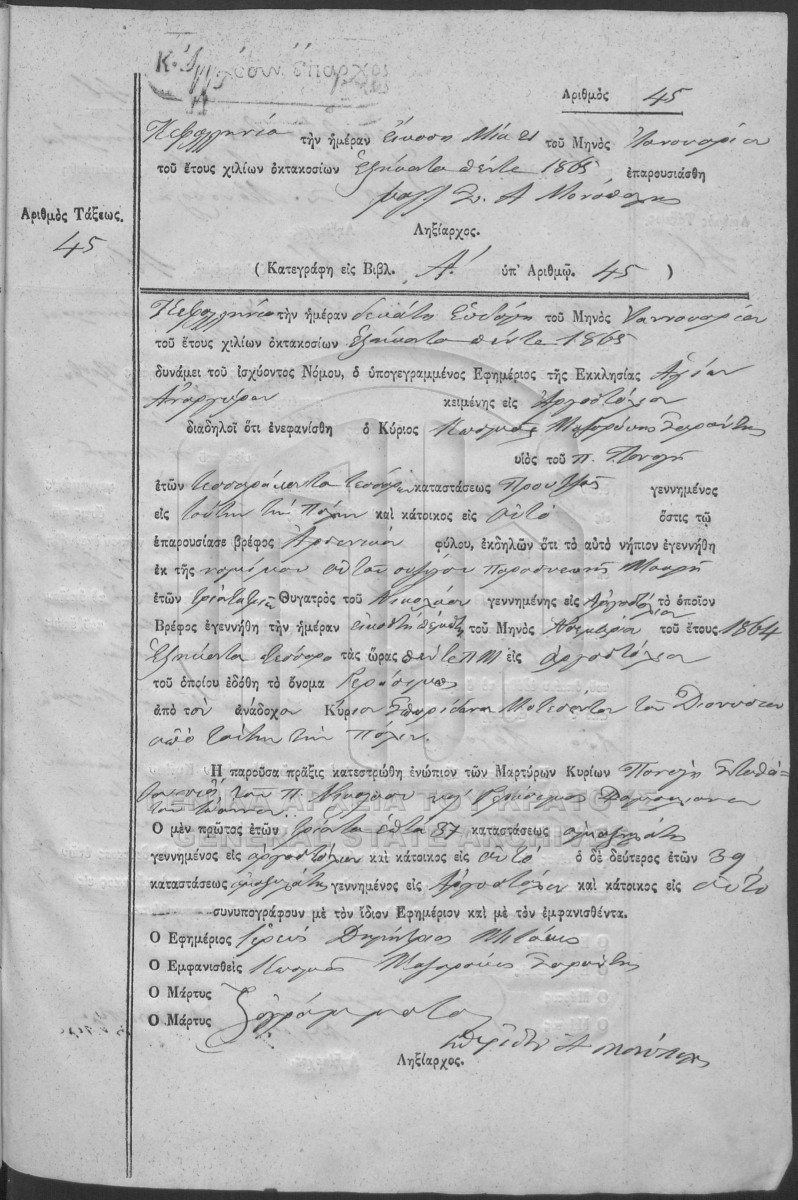 Ἔπαρχος
Ἀριθμὸς 45
Κεφαλληνία τὴν ἡμέραν εἴκοσι μία 21 τοῦ Μηνὸς Ἰανουαρίου
τοῦ ἔτους χιλίων ὀκτακοσίων ἑξήκοντα πέντε 1865 ἐπαρουσιάσθη
Ληξίαρχος.
Ἀριθμὸς Τάξεως.
45
( Κατεγράφη εἰς Βιβλ. Α΄ ὑπ' Ἀριθμῷ. 45 )
Κεφαλληνία τὴν ἡμέραν δεκάτη ἑβδόμη τοῦ Μηνὸς Ἰαννουαρίου
τοῦ ἔτους χιλίων ὀκτακοσίων ἑξήκοντα πέντε 1865
δυνάμει τοῦ ἰσχύοντος Νόμου, ὁ ὑπογεγραμμένος Ἐφημέριος τῆς Ἐκκλησίας Ἁγίων
Ἀναργύρων κειμένης εἰς Ἀργοστόλιον
διαδηλοῖ ὅτι ἐνεφανίσθη ὁ Κύριος Κοσμᾶς
υἱὸς τοῦ π. Παναγῆ
ἐτῶν τεσσαράκοντα τεσσάρων καταστάσεως γεννημένος
εἰς ταύτην τὴν Πόλιν καὶ κάτοικος εἰς αὐτὸ ὅστις τῷ
ἐπαρουσίασε βρέφος Ἀρσενικοῦ φύλου, ἐκδηλῶν ὅτι τὸ αὐτὸ νήπιον ἐγεννήθη
ἐκ τῆς νομίμου αὐτοῦ συζύγου Παρασκευῆς
ἐτῶν Θυγατρὸς τοῦ Νικολάου γεννημένης εἰς Ἀργοστόλιον τὸ ὁποῖον
Βρέφος ἐγεννήθη τὴν ἡμέραν εἰκοστὴ πέμπτη τοῦ Μηνὸς τοῦ ἔτους 1864
Ἑξήκοντα τέσσαρα τὰς ὥρας πέντε ΠΜ εἰς Ἀργοστόλιον
τοῦ ὁποίου ἐδόθη τὸ ὄνομα Γεράσιμος
ἀπὸ τὸν ἀνάδοχον Κύριον Σπυρίδωνα τοῦ Διονυσίου
ἀπὸ ταύτην τὴν Πόλιν.
Ἡ παροῦσα πρᾶξις κατεστρώθη ἐνώπιον τῶν Μαρτύρων Κυρίων Παναγῆ
τοῦ π. Νικολάου καὶ Γεράσιμος
ΓΕΝΙΚΑ ΑΡΧΕΙΑ ΤΟΥ ΚΡΑΤΟΥΣ
Ὁ μὲν πρῶτος ἐτῶν τριάντα ἑπτὰ 37 καταστάσεως ἁμαξηλάτης
GENERAL STATE ARCHIVES
γεννημένος εἰς Ἀργοστόλιον καὶ κάτοικος εἰς αὐτὸ ὁ δὲ δεύτερος ἐτῶν 39
καταστάσεως ἁμαξηλάτης γεννημένος εἰς Ἀργοστόλιον καὶ κάτοικος εἰς αὐτὸ
συνυπογράφουν μὲ τὸν ἴδιον Ἐφημέριον καὶ μὲ τὸν ἐμφανισθέντα.
Ὁ Ἐφημέριος Ἱερεὺς Δημήτριος
Ὁ Ἐμφανισθεὶς Κοσμᾶς
Ὁ Μάρτυς
Ὁ Μάρτυς ἀγράμματοι
Ληξίαρχος.